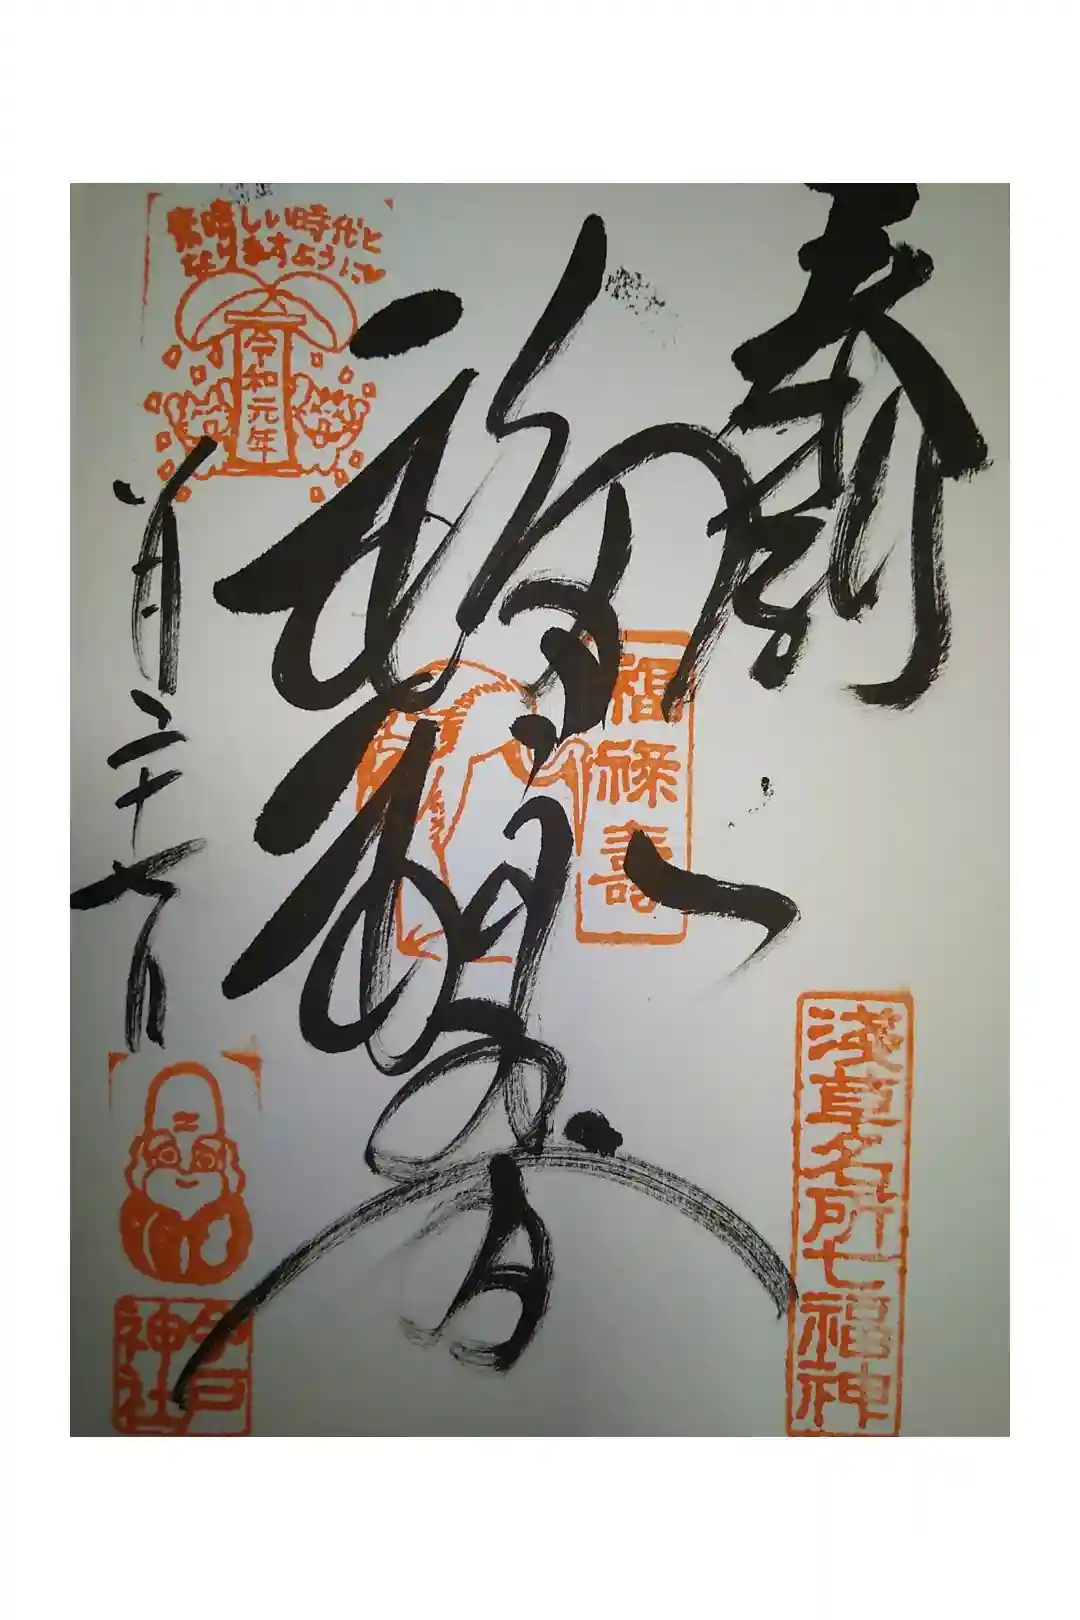 奉拝
福禄寿
福禄壽
淺草名所七福神
素晴しい時代と
なりますように♥
令和元年
月二十七日
今戸
神社